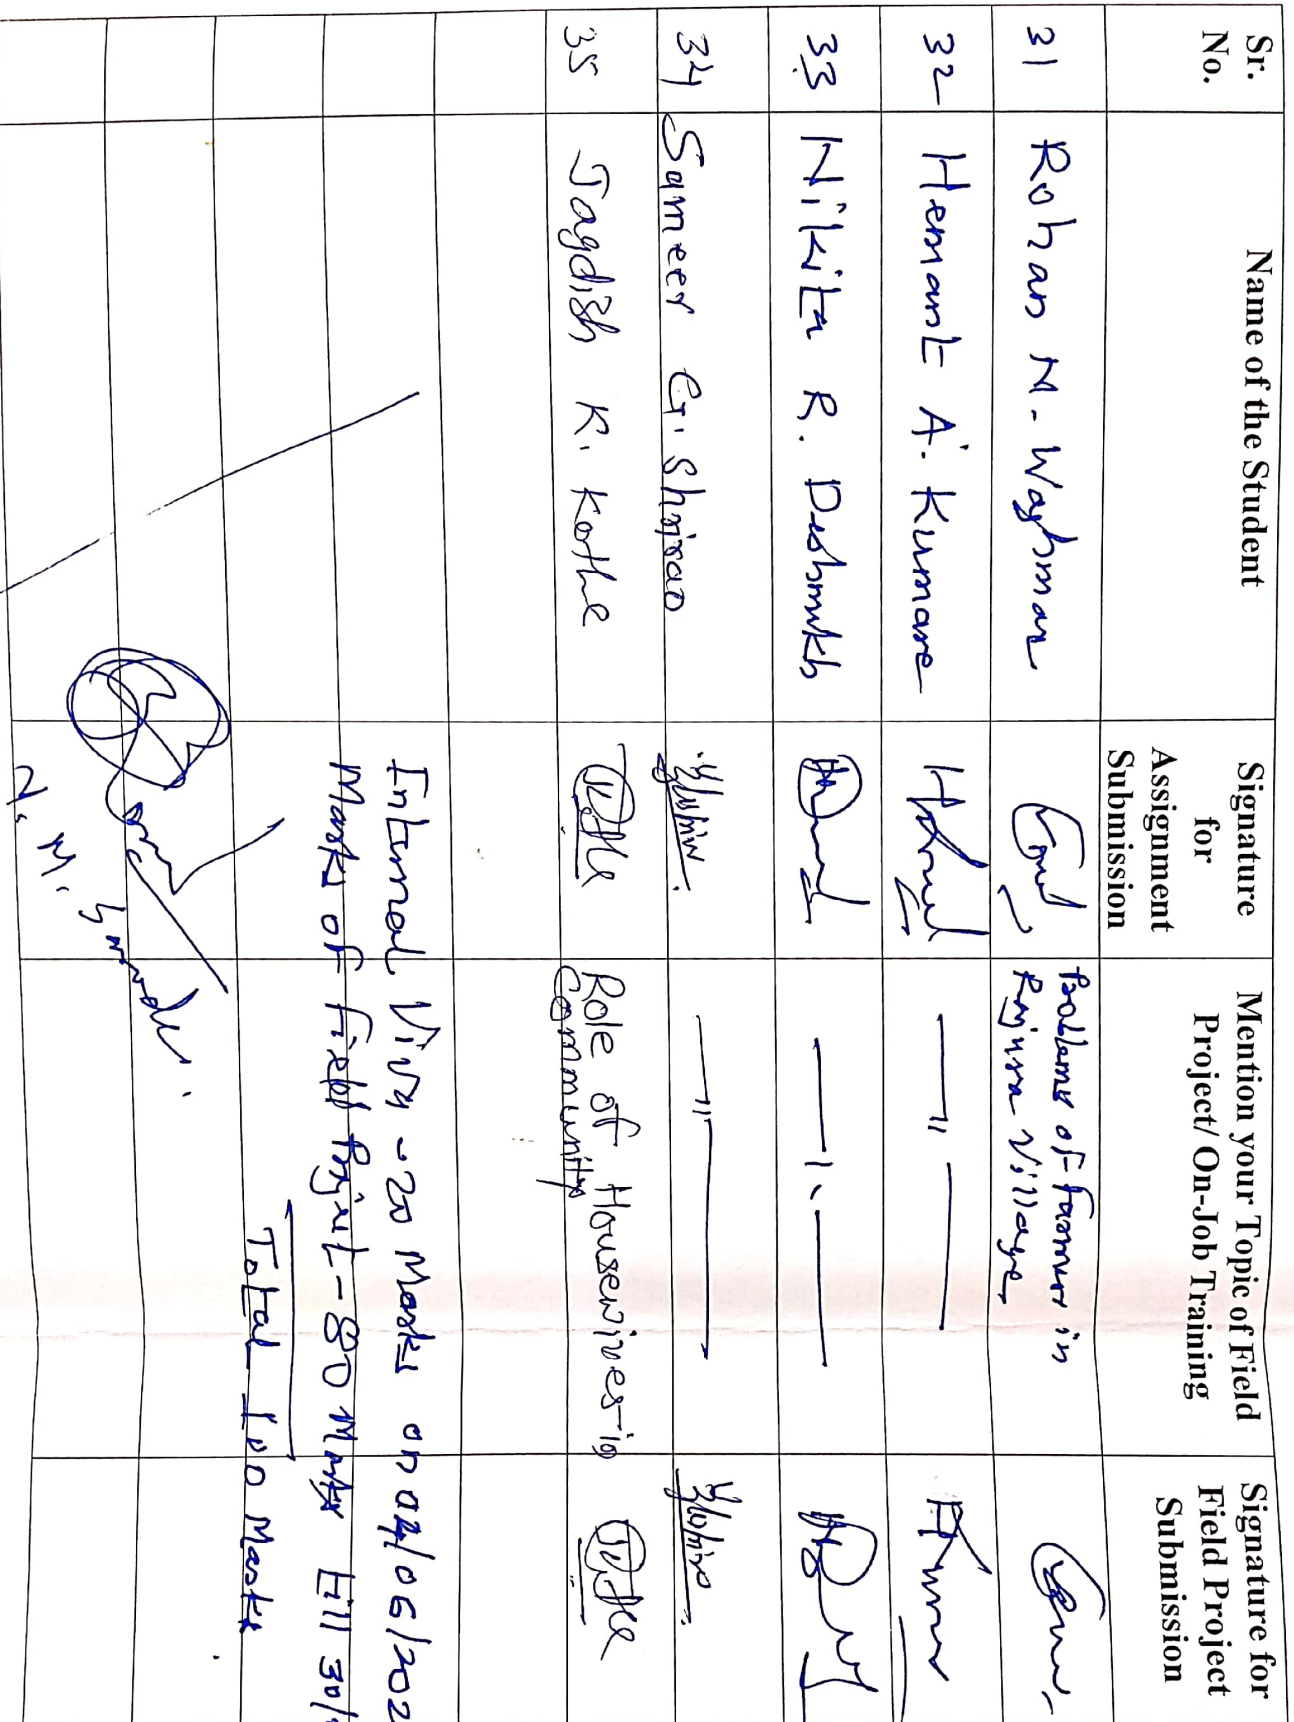 Sr. No.
Name of the Student
Signature for Assignment Submission
Mention your Topic of Field Project/ On-Job Training
Signature for Field Project Submission
31 Rohan M. Waghmare Problems of farmer in
Rajura Village
32 Hemant A. Kumare —〃—
33 Nikita R. Deshmukh —〃—
34 Sameer G. Shrirao —〃—
35 Jagdish K. Kothe Role of Housewives in
Community
Internal Viva - 20 Marks on 02/06/202
Marks of Field Project - 80 Marks till 30/
Total 100 Marks